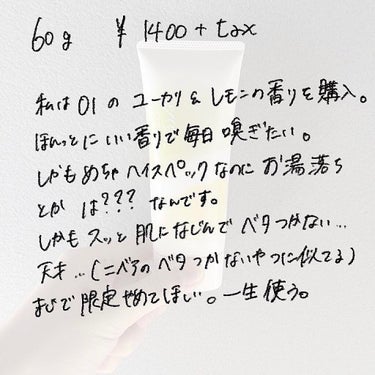 60g ¥1400+tax
私は01のユーカリ&レモンの香りを購入。
ほんっとにいい香りで毎日嗅ぎたい。
しかもめちゃハイスペックなのにお湯落ち
とかは???なんです。
しかもスッと肌になじんでベタつかない…
天才…(ニベアのベタつかないやつに似てる)
まじで限定やめてほしい。一生使う。